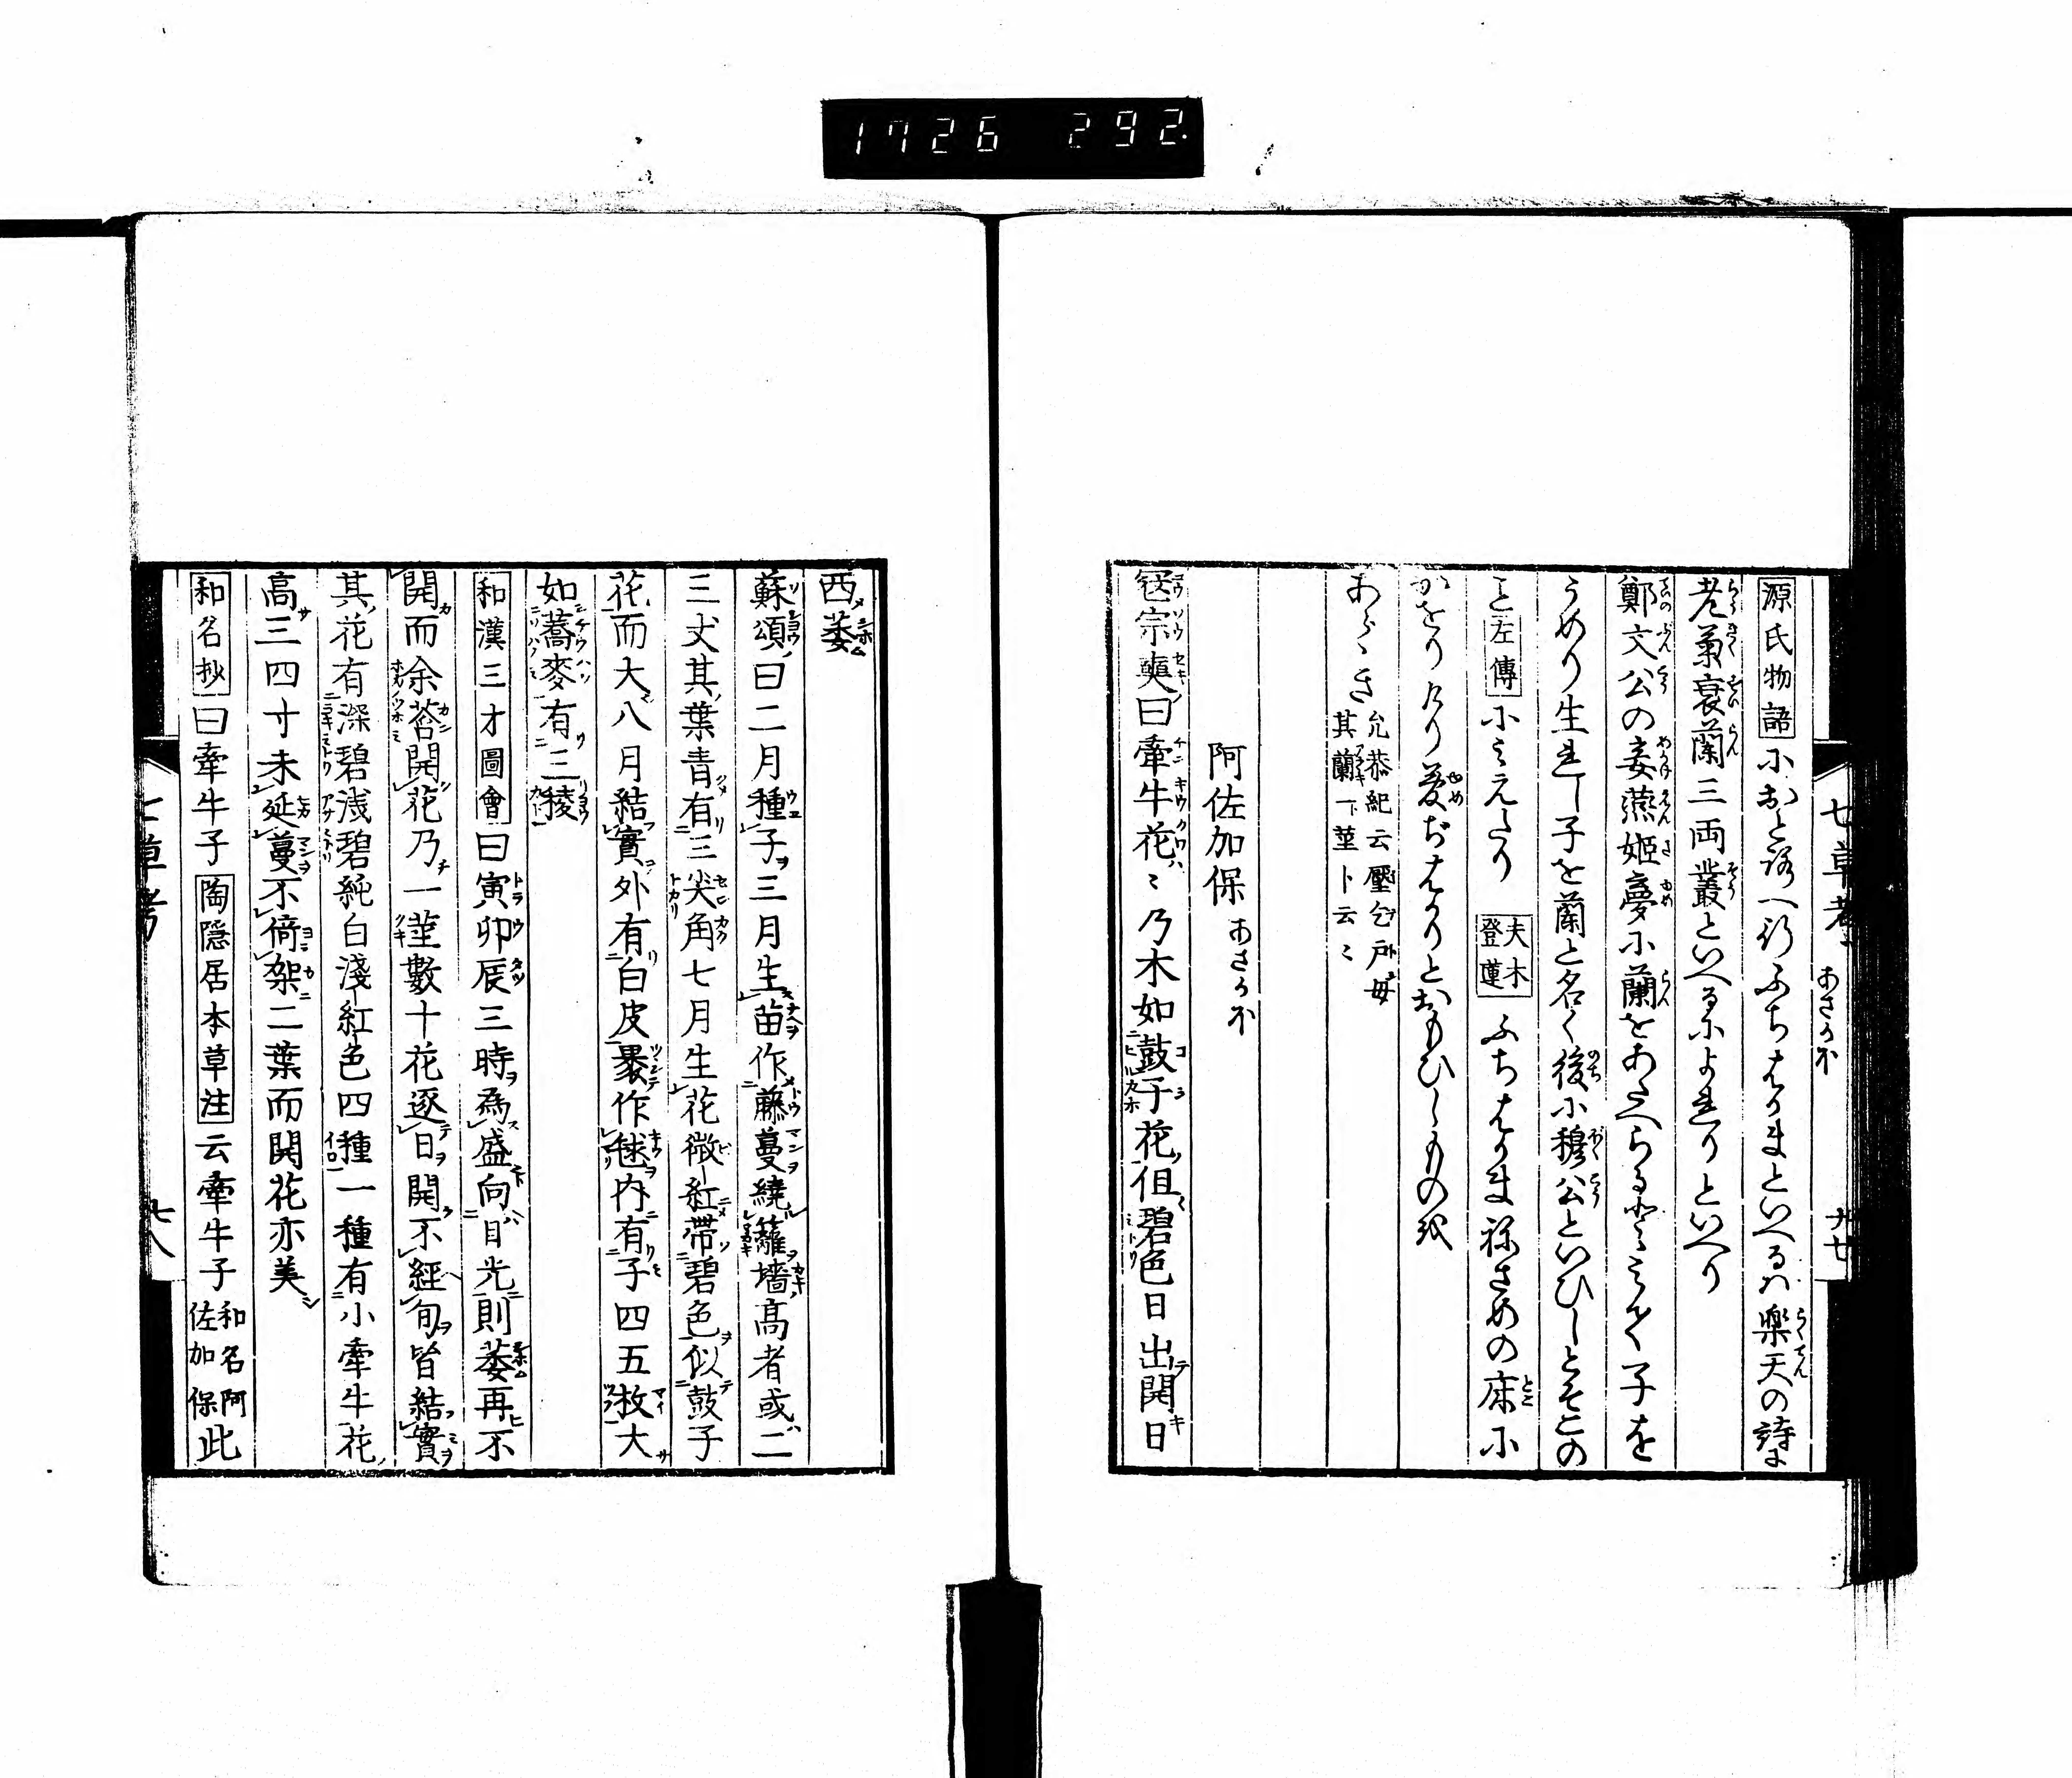 1726 292
七草考 あさかほ 九七
源氏物語におとろへ行ふちはかまといへるハ楽天の詩に
老菊衰蘭三両叢といへるによれりといへり
鄭文公の妾燕姫夢に蘭をあたへらるとみて子を
うめり生れし子を蘭と名く後に穆公といひしとそこの
こと左傳にみえたり 夫木 登蓮 ふちはかま祢さめの床に
かをりけり夢ぢはかりとおもひしものを
あらゝき 允恭紀云壓乞戸母其蘭一茎ト云〻
阿佐加保 あさかほ
寇宗奭曰牽牛花〻乃木如鼓子花但碧色日出開日
西萎
蘇頌曰二月種子三月生苗作藤蔓繞籬墻高者或二
三丈其葉青有三尖角七月生花微紅帯碧色似鼓子
花而大八月結實外有白皮裹作毬内有子四五枚大
如蕎麥有三稜
和漢三才圖會曰寅卯辰三時為盛向日光則萎再不
開而余莟開花乃一莖數十花逐日開不經旬皆結實
其花有深碧浅碧純白淺紅色四種一種有小牽牛花
高三四寸未延蔓不倚架二葉而開花亦美
和名抄曰牽牛子陶隠居本草注云牽牛子和名阿佐加保此
七草考 七八